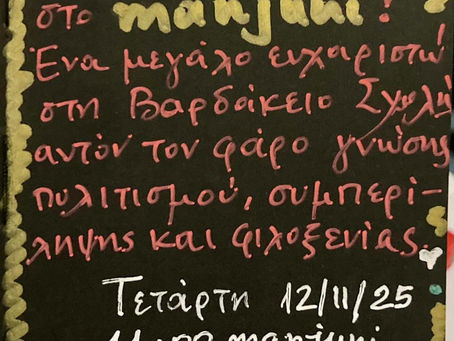 στο manjuki!
Ένα μεγάλο ευχαριστώ
στη Βαρδάκειο Σχολή
αυτόν τον φάρο γνώσης
πολιτισμού, συμπερί-
ληψης και φιλοξενίας.
Τετάρτη 12/11/25